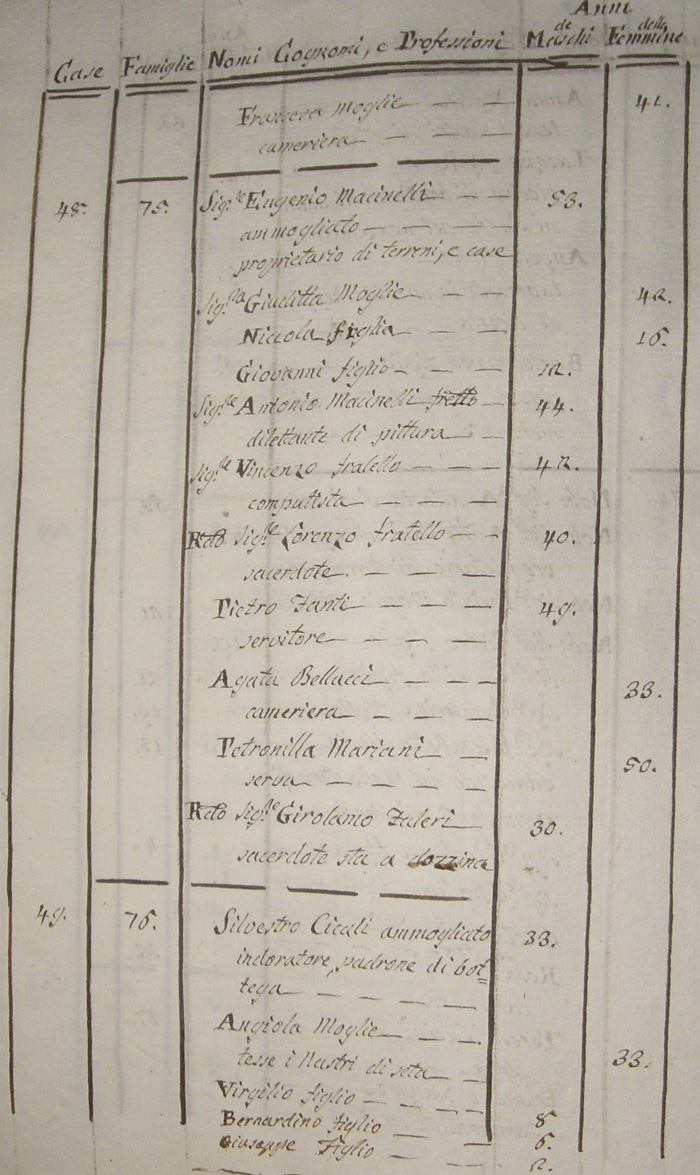 Anni
Case Famiglie Nomi Cognomi, e Professioni de Maschi delle Femmine
Francesca Moglie 41.
cameriera
48. 75. Sig.re Eugenio Macinelli 53.
ammogliato
proprietario di terreni, e case
Sig.ra Giuditta Moglie 42.
Niccola figlia 16.
Giovanni figlio 12.
Sig.re Antonio Macinelli fretto 44.
dilettante di pittura
Sig.re Vincenzo fratello 42.
computista
Rdo Sig.re Lorenzo fratello 40.
sacerdote
Pietro Zanti 49.
servitore
Agata Bellucci 33.
cameriera
Petronilla Mariani 50.
serva
Rdo Sig.re Girolamo Zaleri 30.
sacerdote sta a dozzina
49. 76. Silvestro Cicali ammogliato 33.
indoratore, padrone di bot=
tega
Angiola Moglie
tesse i Nastri di seta 33.
Virgilio figlio 8
Bernardino figlio 6.
Giuseppe Figlio 2.